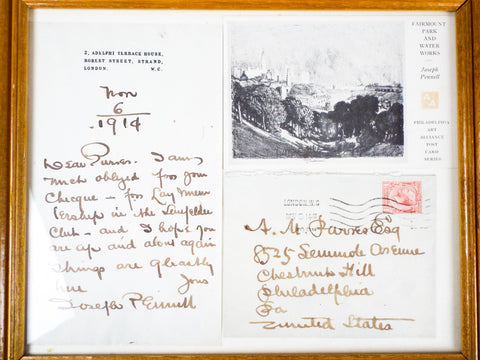 2, ADELPHI TERRACE HOUSE,
ROBERT STREET, STRAND,
LONDON. W.C.
Nov
6
1914
Dear Purves. I am
much obliged for your
Cheque - for Lay Mem
bership in the
Club - and I hope you
are up and about again
Things are ghastly
here Yours
Joseph Pennell
FAIRMOUNT
PARK
AND
WATER
WORKS
Joseph
Pennell
PHILADELPHIA
ART
ALLIANCE
POST
CARD
SERIES
LONDON, W.C
A. M. Purves Esq
8525 Seminole Avenue
Chestnut Hill
Philadelphia
Pa
United States